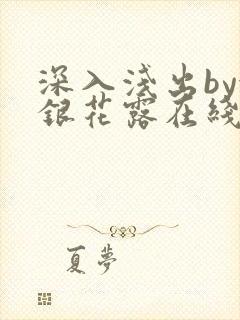 深入浅出by
銀花露在綫
夏夢